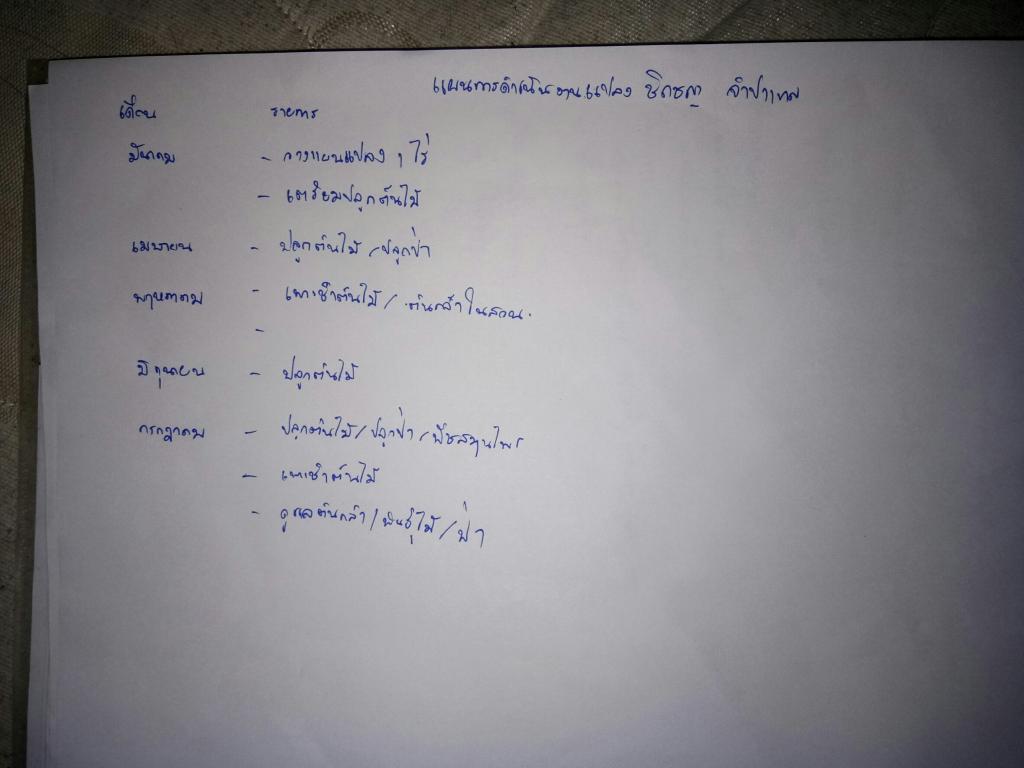 แผนการดำเนินงานแปลง ชิดชญา จำปาเทศ
เดือน รายการ
มีนาคม - วางแผนแปลง 1 ไร่
- เตรียมปลูกต้นไม้
เมษายน - ปลูกต้นไม้ /ปลูกป่า
พฤษภาคม - เพาะชำต้นไม้ / ต้นกล้าในสวน.
-
มิถุนายน - ปลูกต้นไม้
กรกฎาคม - ปลูกต้นไม้/ปลูกป่า /พืชสมุนไพร
- เพาะชำต้นไม้
- ดูแลต้นกล้า/พันธุ์ไม้ /ป่า